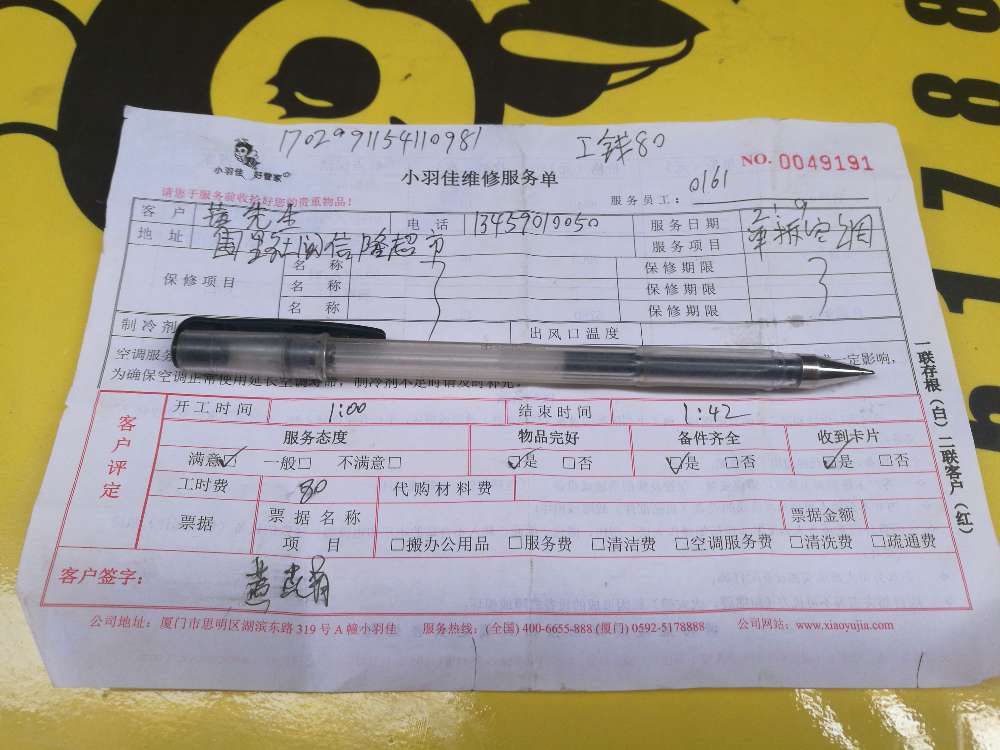 1702991154110981 工钱80
小羽佳 好管家
小羽佳维修服务单
NO. 0049191
请您于服务前收拾好您的贵重物品!
服务员工: 0161
客户 先生 电话 13459010050 服务日期 2.9
地址 社闽信隆超市 服务项目 单拆空调
保修项目 名称 保修期限
名称 保修期限
名称 保修期限
制冷剂 出风口温度
空调服务 一定影响,
为确保空调正常使用延长空调寿命,制冷剂不足时请及时补充。
客户评定
开工时间 1:00 结束时间 1:42
服务态度 物品完好 备件齐全 收到卡片
满意☑ 一般□ 不满意□ ☑是 □否 ☑是 □否 ☑是 □否
工时费 80 代购材料费
票据 票据名称 票据金额
项目 □搬办公用品 □服务费 □清洁费 □空调服务费 □清洗费 □疏通费
客户签字:
公司地址:厦门市思明区湖滨东路319号A幢小羽佳 服务热线:(全国)400-6655-888(厦门)0592-5178888 公司网站:www.xiaoyujia.com
一联存根(白)二联客户(红)
8
8
7